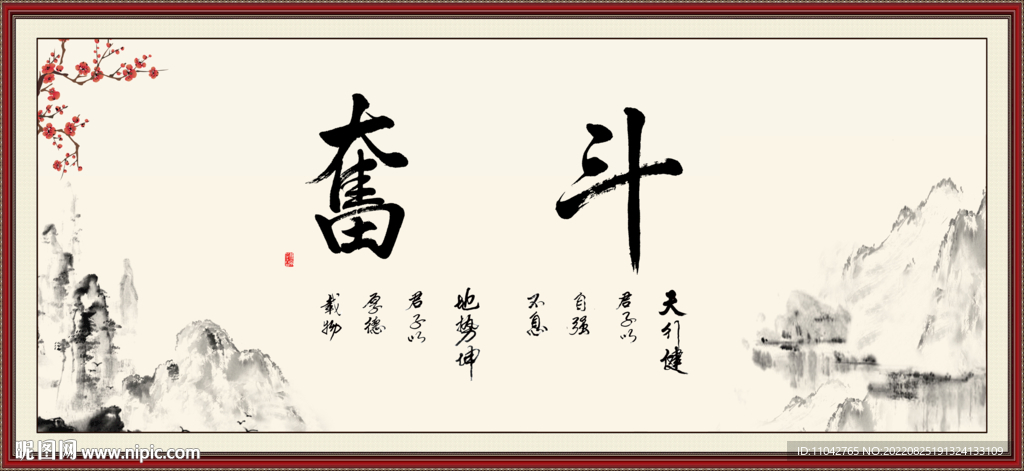 奮斗
天行健
君子以
自强
不息
地势坤
君子以
厚德
载物
昵图网 www.nipic.com
ID:11042765 NO:20220825191324133109